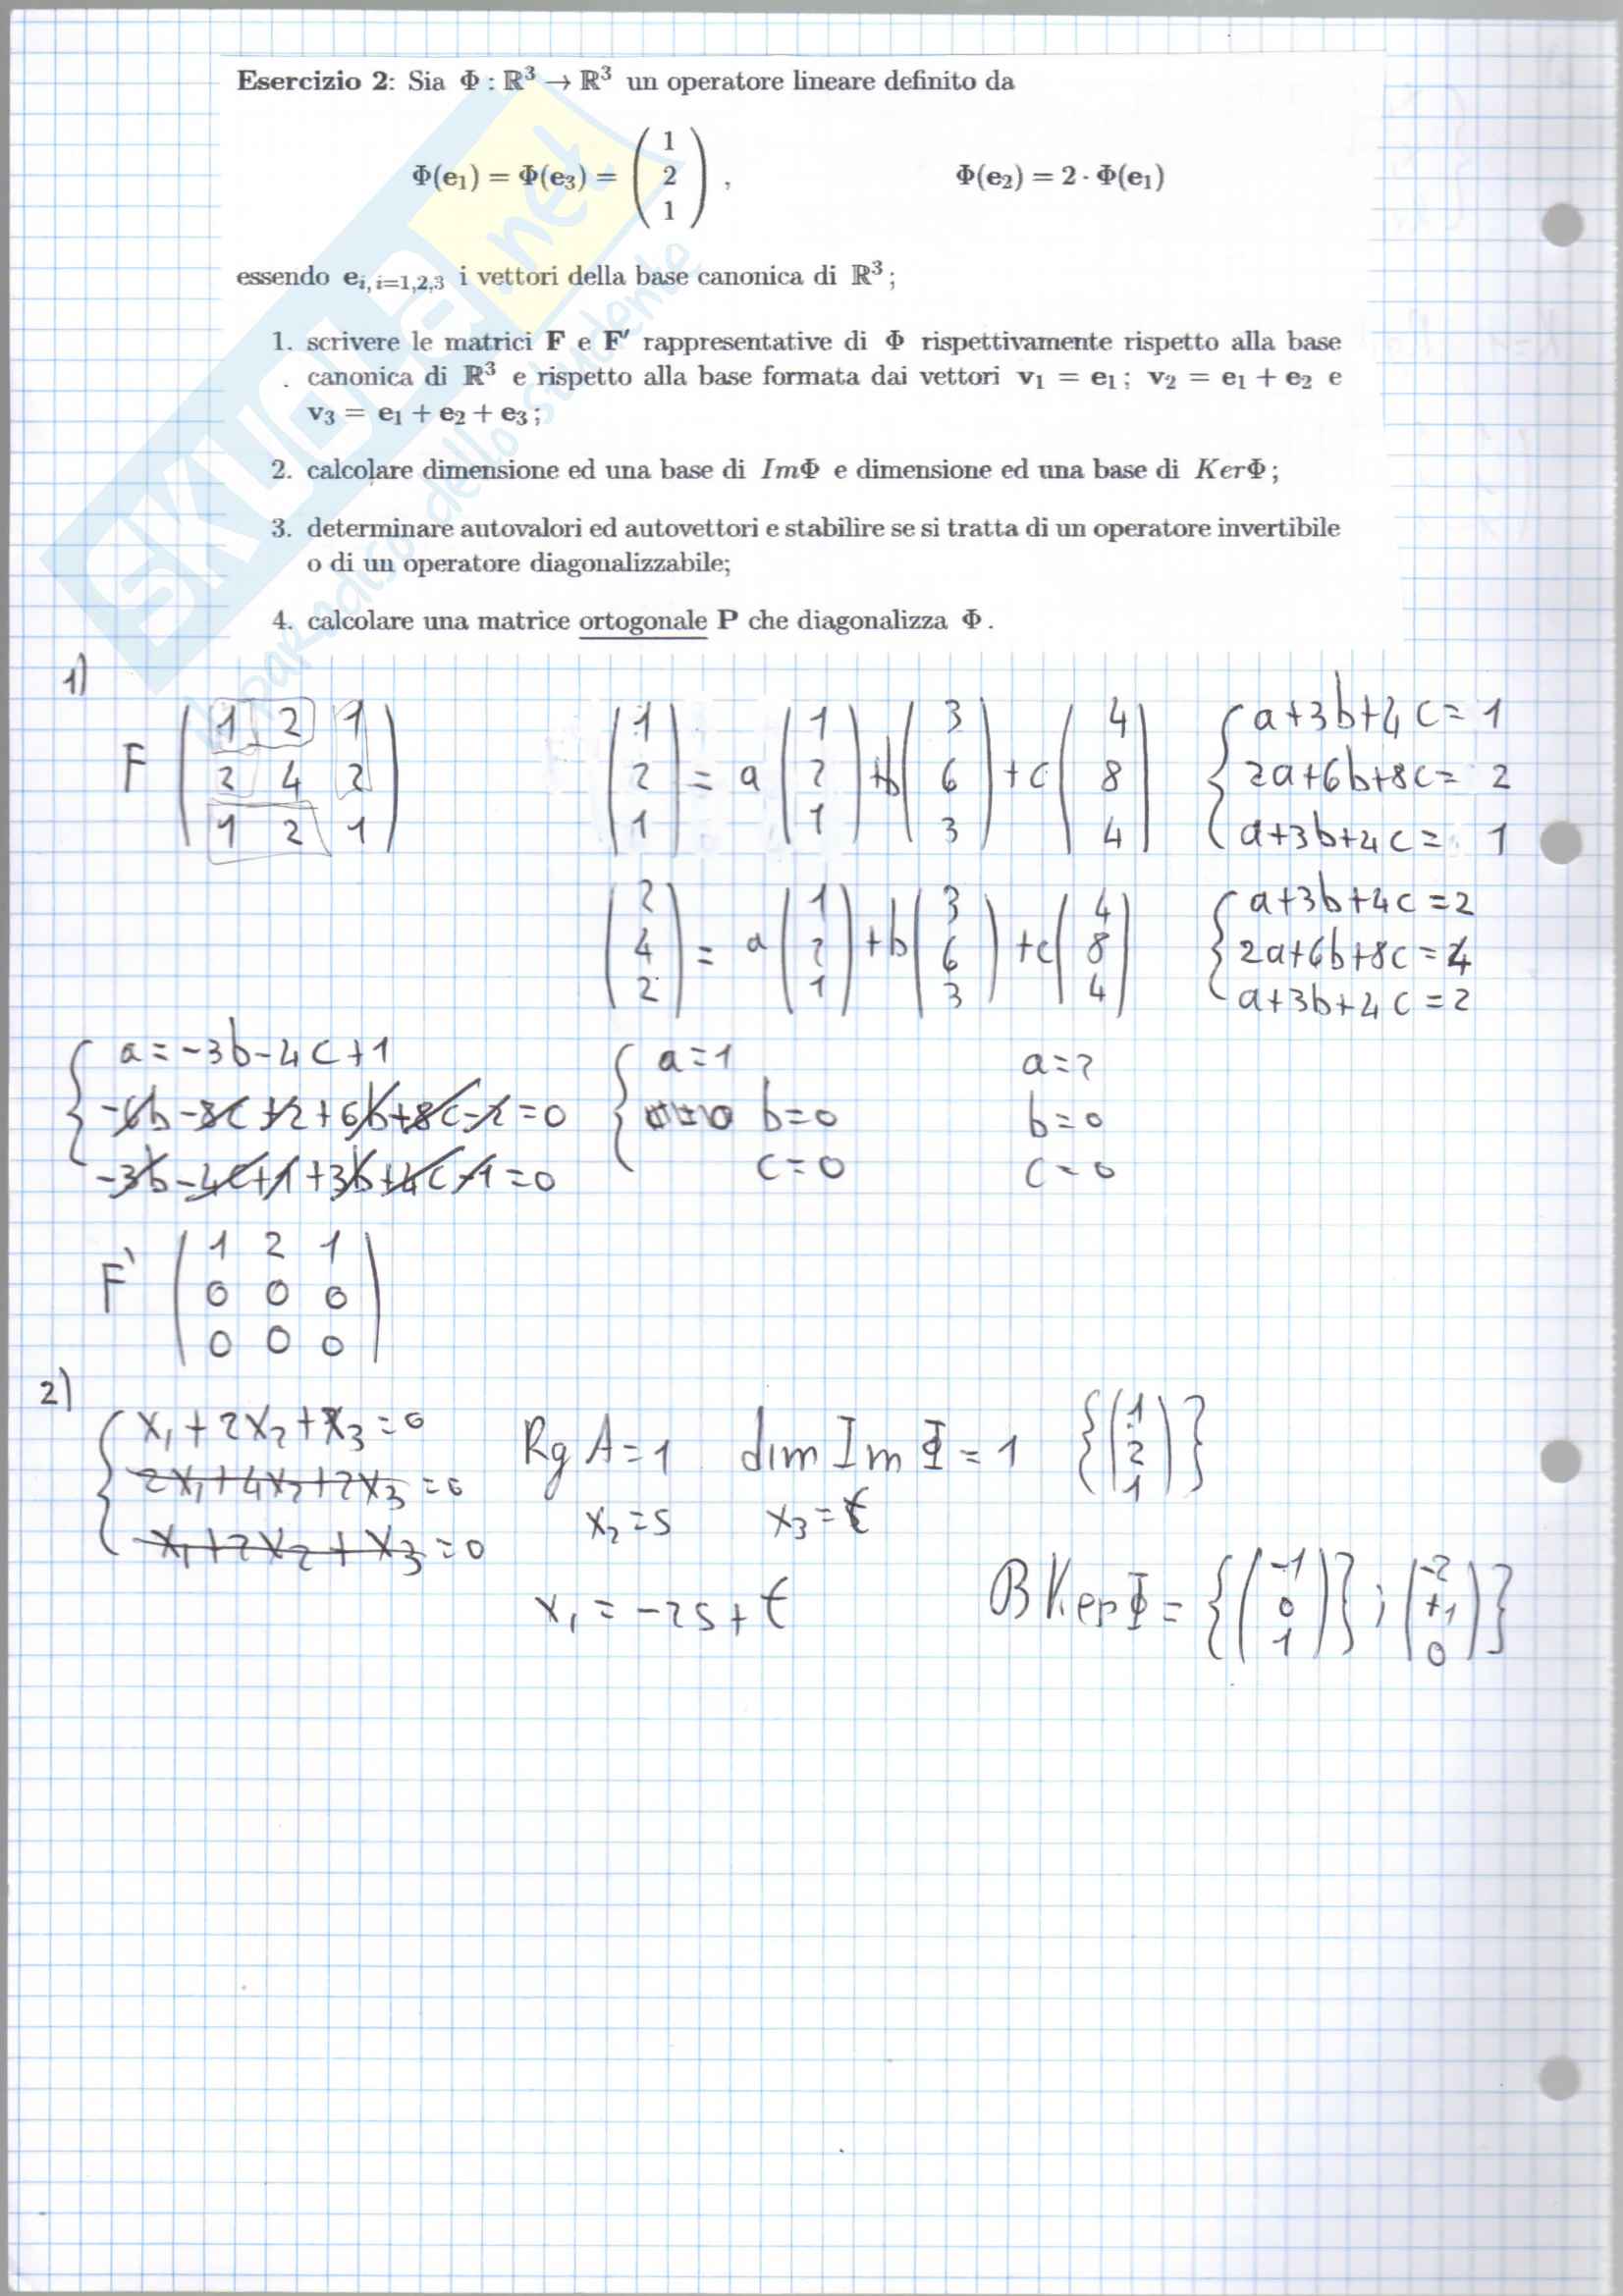 Esercizio 2: Sia Φ : ℝ³ → ℝ³ un operatore lineare definito da
Φ(e₁) = Φ(e₃) = ( 1 2 1 ) , Φ(e₂) = 2 · Φ(e₁)
essendo eᵢ, ᵢ₌₁,₂,₃ i vettori della base canonica di ℝ³ ;
1. scrivere le matrici F e F′ rappresentative di Φ rispettivamente rispetto alla base
canonica di ℝ³ e rispetto alla base formata dai vettori v₁ = e₁ ; v₂ = e₁ + e₂ e
v₃ = e₁ + e₂ + e₃ ;
2. calcolare dimensione ed una base di ImΦ e dimensione ed una base di KerΦ ;
3. determinare autovalori ed autovettori e stabilire se si tratta di un operatore invertibile
o di un operatore diagonalizzabile;
4. calcolare una matrice ortogonale P che diagonalizza Φ .
SKUOLA.net
il paradiso dello studente
1)
F ( 1 2 1
2 4 2
1 2 1 )
( 1 2 1 ) = a ( 1 2 1 ) + b ( 3 6 3 ) + c ( 4 8 4 )
{ a+3b+4c = 1
2a+6b+8c = 2
a+3b+4c = 1
( 2 4 2 ) = a ( 1 2 1 ) + b ( 3 6 3 ) + c ( 4 8 4 )
{ a+3b+4c = 2
2a+6b+8c = 4
a+3b+4c = 2
{ a = -3b-4c+1
-6b-8c+2+6b+8c-2 = 0
-3b-4c+1+3b+4c-1 = 0
{ a = 1
b = 0
c = 0
a = 2
b = 0
c = 0
F' ( 1 2 1
0 0 0
0 0 0 )
2)
{ x₁ + 2x₂ + x₃ = 0
2x₁ + 4x₂ + 2x₃ = 0
x₁ + 2x₂ + x₃ = 0
Rg A = 1 dim Im Φ = 1 { ( 1 2 1 ) }
x₂ = s x₃ = t
x₁ = -2s + t
B Ker Φ = { ( -1 0 1 ) } ; ( -2 +1 0 ) }